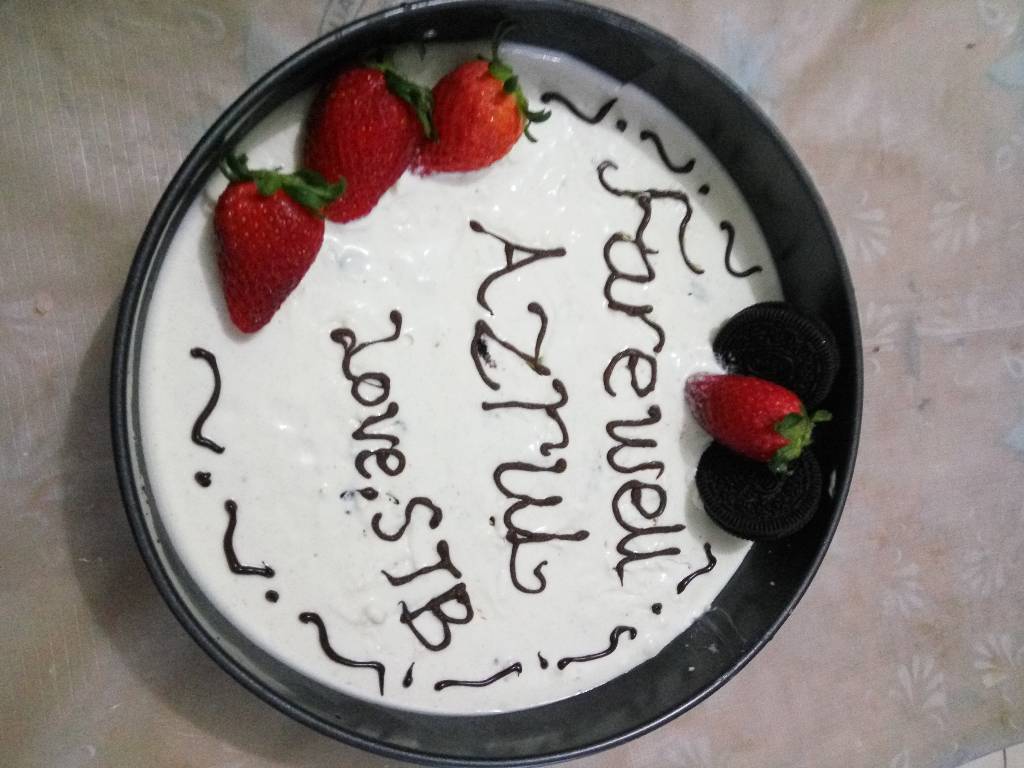 Farewell
AZRUL
Love, STB